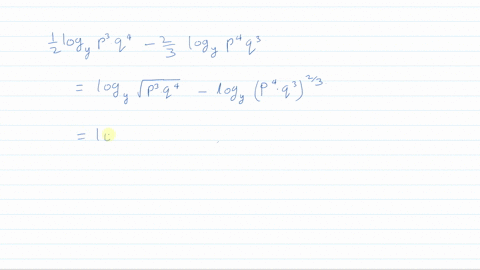 ½ log_y p³ q⁴ − 2/3 log_y p⁴ q³
= log_y √(p³ q⁴) − log_y (p⁴ · q³)^(2/3)
= lo